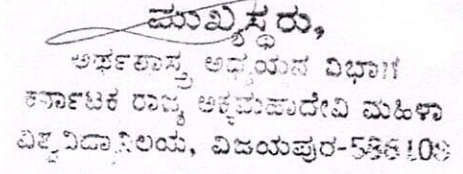 ಮುಖ್ಯಸ್ಥರು,
ಅರ್ಥಶಾಸ್ತ್ರ ಅಧ್ಯಯನ ವಿಭಾಗ
ಕರ್ನಾಟಕ ರಾಜ್ಯ ಅಕ್ಕಮಹಾದೇವಿ ಮಹಿಳಾ
ವಿಶ್ವವಿದ್ಯಾನಿಲಯ, ವಿಜಯಪುರ-586109